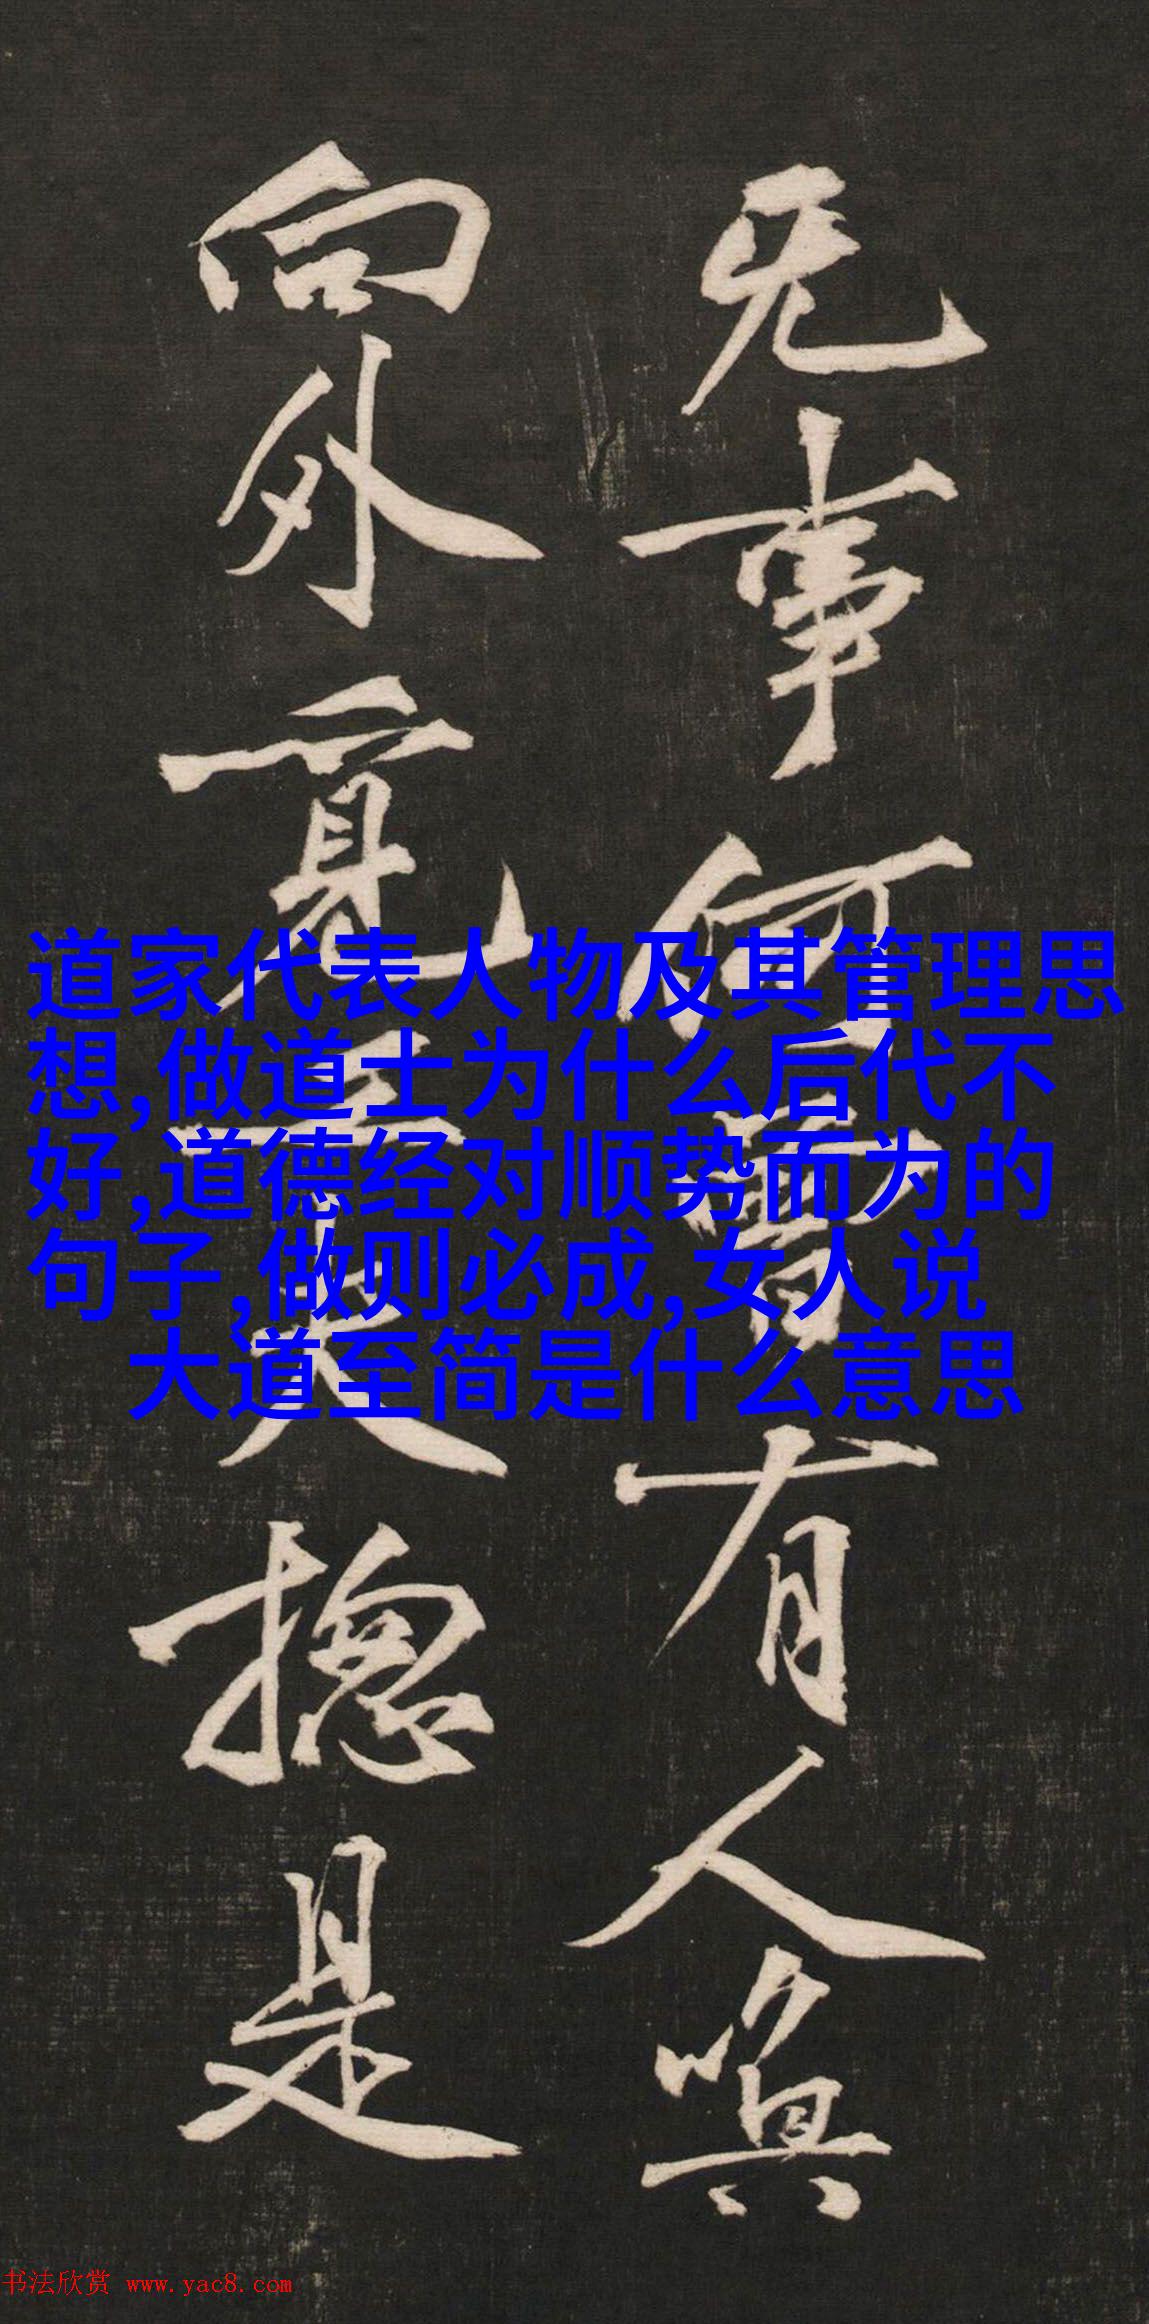 事何曾有人
向外覓揔是
道家代表人物及其管理思
想,做道士为什么后代不
好,道德经对顺势而为的
句子,做则必成,女人说
大道至简是什么意思
书法欣赏 www.yac8.com